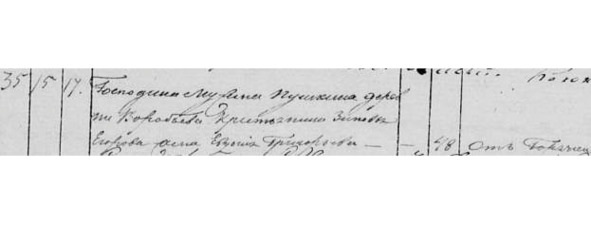 35 15 17. Господина Мусина Пушкина дерев
ни Воробьева Крестьянина
Егорова жена Евдокия Григорьева — — 48 Отъ